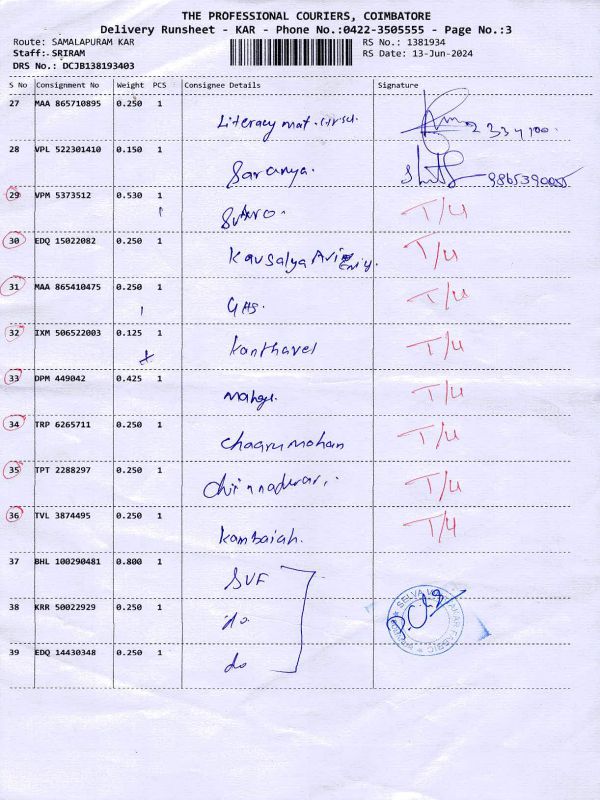 THE PROFESSIONAL COURIERS, COIMBATORE
Delivery Runsheet - KAR - Phone No.:0422-3505555 - Page No.:3
Route: SAMALAPURAM KAR RS No.: 1381934
Staff: SRIRAM RS Date: 13-Jun-2024
DRS No.: DCJB138193403
S No Consignment No Weight PCS Consignee Details Signature
27 MAA 865710895 0.250 1 Literacy mat.
28 VPL 522301410 0.150 1 Saranya.
29 VPM 5373512 0.530 1 T/U
30 EDQ 15022082 0.250 1 Kausalya T/U
31 MAA 865410475 0.250 1 T/U
32 IXM 506522003 0.125 1 Kanthavel T/U
33 DPM 449042 0.425 1 T/U
34 TRP 6265711 0.250 1 Chaarumohan T/U
35 TPT 2288297 0.250 1 T/U
36 TVL 3874495 0.250 1 Kambaiah. T/U
37 BHL 100290481 0.800 1 SVF
38 KRR 50022929 0.250 1 do
39 EDQ 14430348 0.250 1 do
SELVA FABRIC